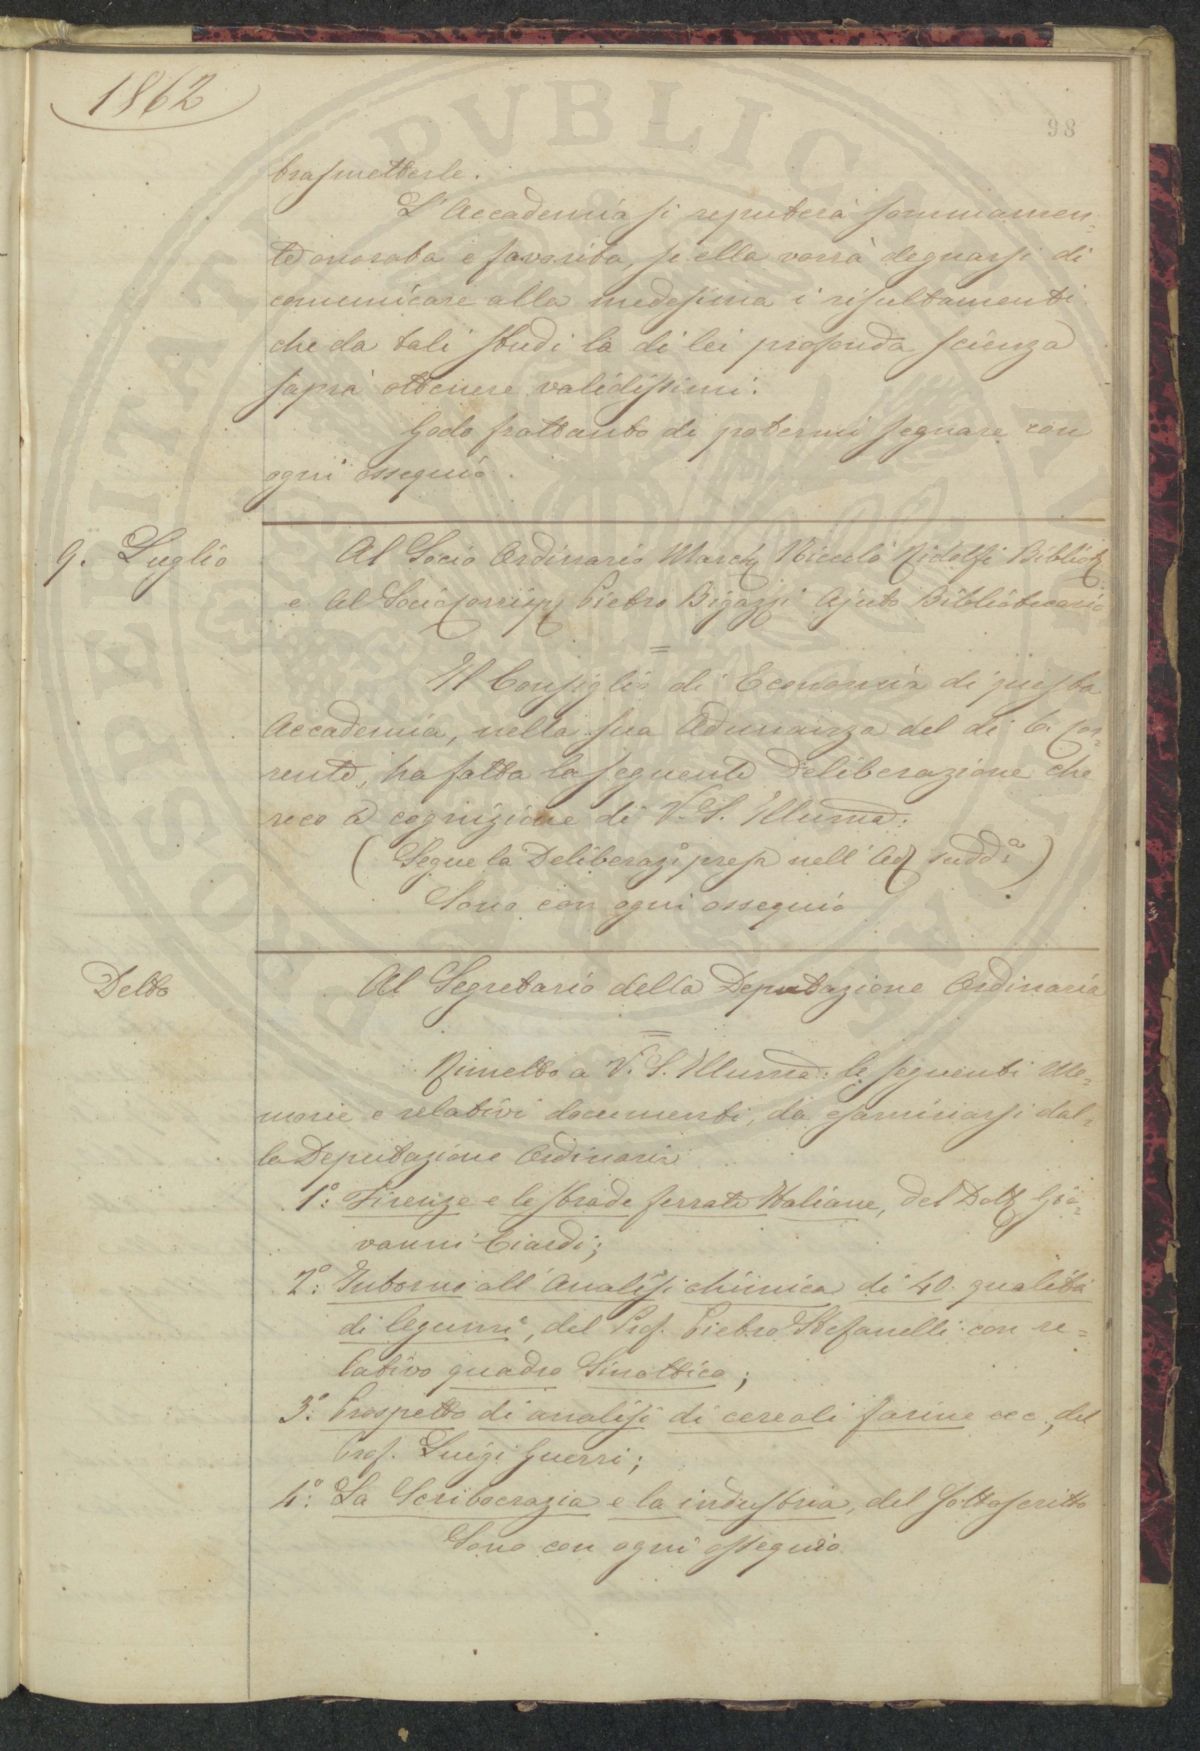 1862
98
trasmetterle.
L'Accademia si reputerà sommamen-
te onorata e favorita, se ella vorrà degnarsi di
comunicare alla medesima i risultamenti
che da tali studi la di lei profonda scienza
saprà ottenere validissimi.
Godo frattanto di potermi segnare con
ogni ossequio.
9. Luglio
Al Socio Ordinario March. Niccolò Ridolfi Bibliot.
e al Socio corrisp. Pietro Bigazzi Ajuto Bibliotecario
=
Il Consiglio di Economia di questa
Accademia, nella sua Adunanza del dì 6. cor-
rente, ha fatta la seguente Deliberazione che
reco a cognizione di V. S. Illuma:
(Segue la Deliberaz. presa nell'Ad. sudd.a)
Sono con ogni ossequio
Detto
Al Segretario della Deputazione Ordinaria
=
Rimetto a V. S. Illuma: le seguenti Me-
morie e relativi documenti, da esaminarsi dal-
la Deputazione Ordinaria
1°: Firenze e le strade ferrate Italiane, del Dott. Gio-
vanni Ciardi;
2°: Intorno all'Analisi chimica di 40. qualità
di legumi, del Prof. Pietro Stefanelli con re-
lativo quadro Sinottico;
3°. Prospetto di analisi di cereali farine ecc., del
Prof. Luigi Guerri;
4°: La Scribocrazia e la industria, del sottoscritto
Sono con ogni ossequio
PROSPERITATI PVBLICAE AVGENDAE